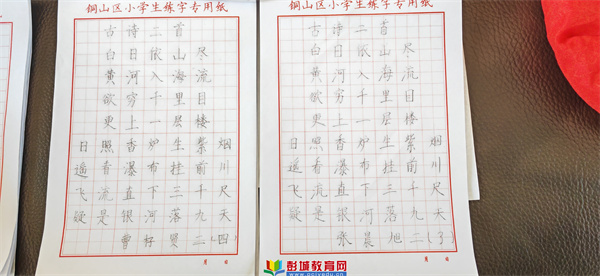 铜山区小学生练字专用纸
古诗二首
白日依山尽
黄河入海流
欲穷千里目
更上一层楼
日照香炉生紫烟
遥看瀑布挂前川
飞流直下三千尺
疑是银河落九天
二(四)
月 日
铜山区小学生练字专用纸
古诗二首
白日依山尽
黄河入海流
欲穷千里目
更上一层楼
日照香炉生紫烟
遥看瀑布挂前川
飞流直下三千尺
疑是银河落九天
张晨旭二(3)
月 日
彭城教育网